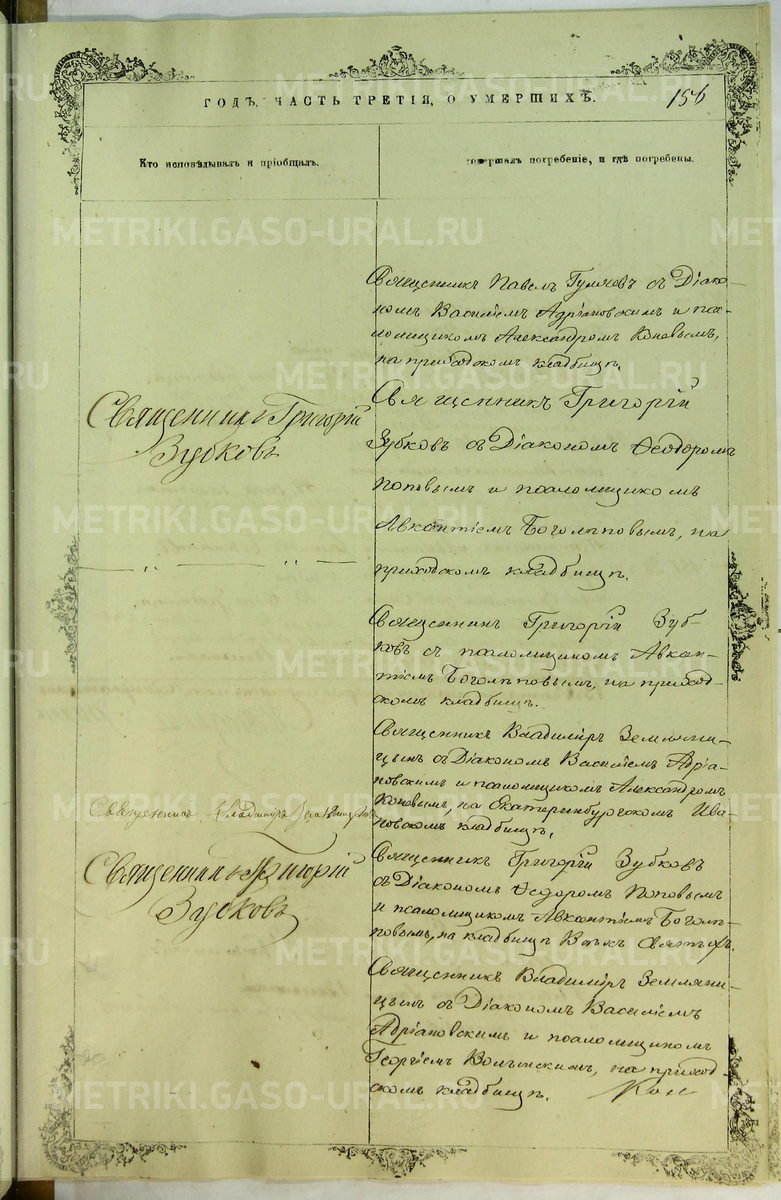 ГОДЪ, ЧАСТЬ ТРЕТІЯ, О УМЕРШИХЪ.
156
Кто исповѣдывалъ и пріобщалъ.
совершалъ погребеніе, и гдѣ погребены.
Священникъ Павелъ Гуляевъ съ Діако-
номъ Василіемъ Адріановскимъ и пса-
ломщикомъ Александромъ Коневымъ,
на приходскомъ кладбищѣ.
Священникъ Григорій
Зубковъ
Священникъ Григорій
Зубковъ съ Діакономъ Ѳеодоромъ
Поповымъ и псаломщикомъ
Авксентіемъ Боголѣповымъ, на
приходскомъ кладбищѣ.
— „ — „ —
Священникъ Григорій Зуб-
ковъ съ псаломщикомъ Авксен-
тіемъ Боголѣповымъ, на приход-
скомъ кладбищѣ.
Священникъ Владиміръ Земляни-
цынъ съ Діакономъ Василіемъ Адріа-
новскимъ и псаломщикомъ Александромъ
Коневымъ, на Екатеринбургскомъ Ива-
новскомъ кладбищѣ.
Священникъ Владиміръ Земляницынъ
Священникъ Григорій
Зубковъ
Священникъ Григорій Зубковъ
съ Діакономъ Ѳедоромъ Поповымъ
и псаломщикомъ Авксентіемъ Боголѣ-
повымъ, на кладбищѣ Всѣхъ Святыхъ.
Священникъ Владиміръ Земляни-
цынъ съ Діакономъ Василіемъ
Адріановскимъ и псаломщикомъ
Георгіемъ Волынскимъ, на приход-
скомъ кладбищѣ.
METRIKI.GASO-URAL.RU